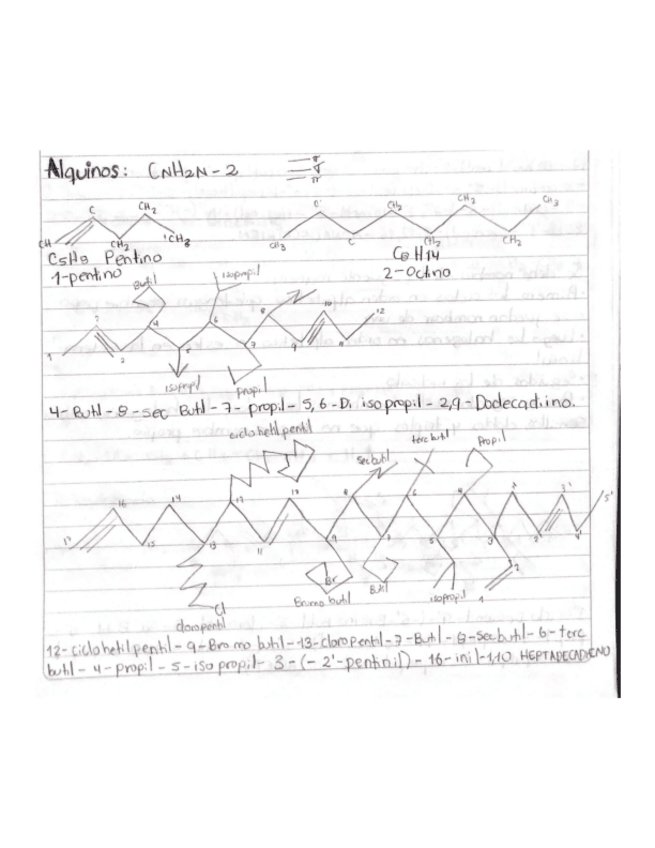 Alquinos: CNH2N-2
σ
π
C CH2 CH2 CH2 CH3
CH CH2 CH3 CH3 C CH2 CH2
C5H9 Pentino C8H14
1-pentino 2-Octino
Butil isopropil
2 4 6 8 10 12
1 3 5 7 9 11
isopropil propil
4-Butil-8-sec Butil-7-propil-5,6-Di isopropil-2,9-Dodecadiino.
ciclohetilpentil sec butil terc butil Propil
16 14 12 10 8 6 4 1' 3' 5'
17 15 13 11 9 7 5 3 2' 4'
Br 2
Cl Bromo butil Butil isopropil 1
cloropentil
12-ciclohetilpentil-9-Bromo butil-13-cloropentil-7-Butil-8-secbutil-6-terc
butil-4-propil-5-isopropil-3-(-2'-pentinil)-16-inil-1,10 HEPTADECADIENO